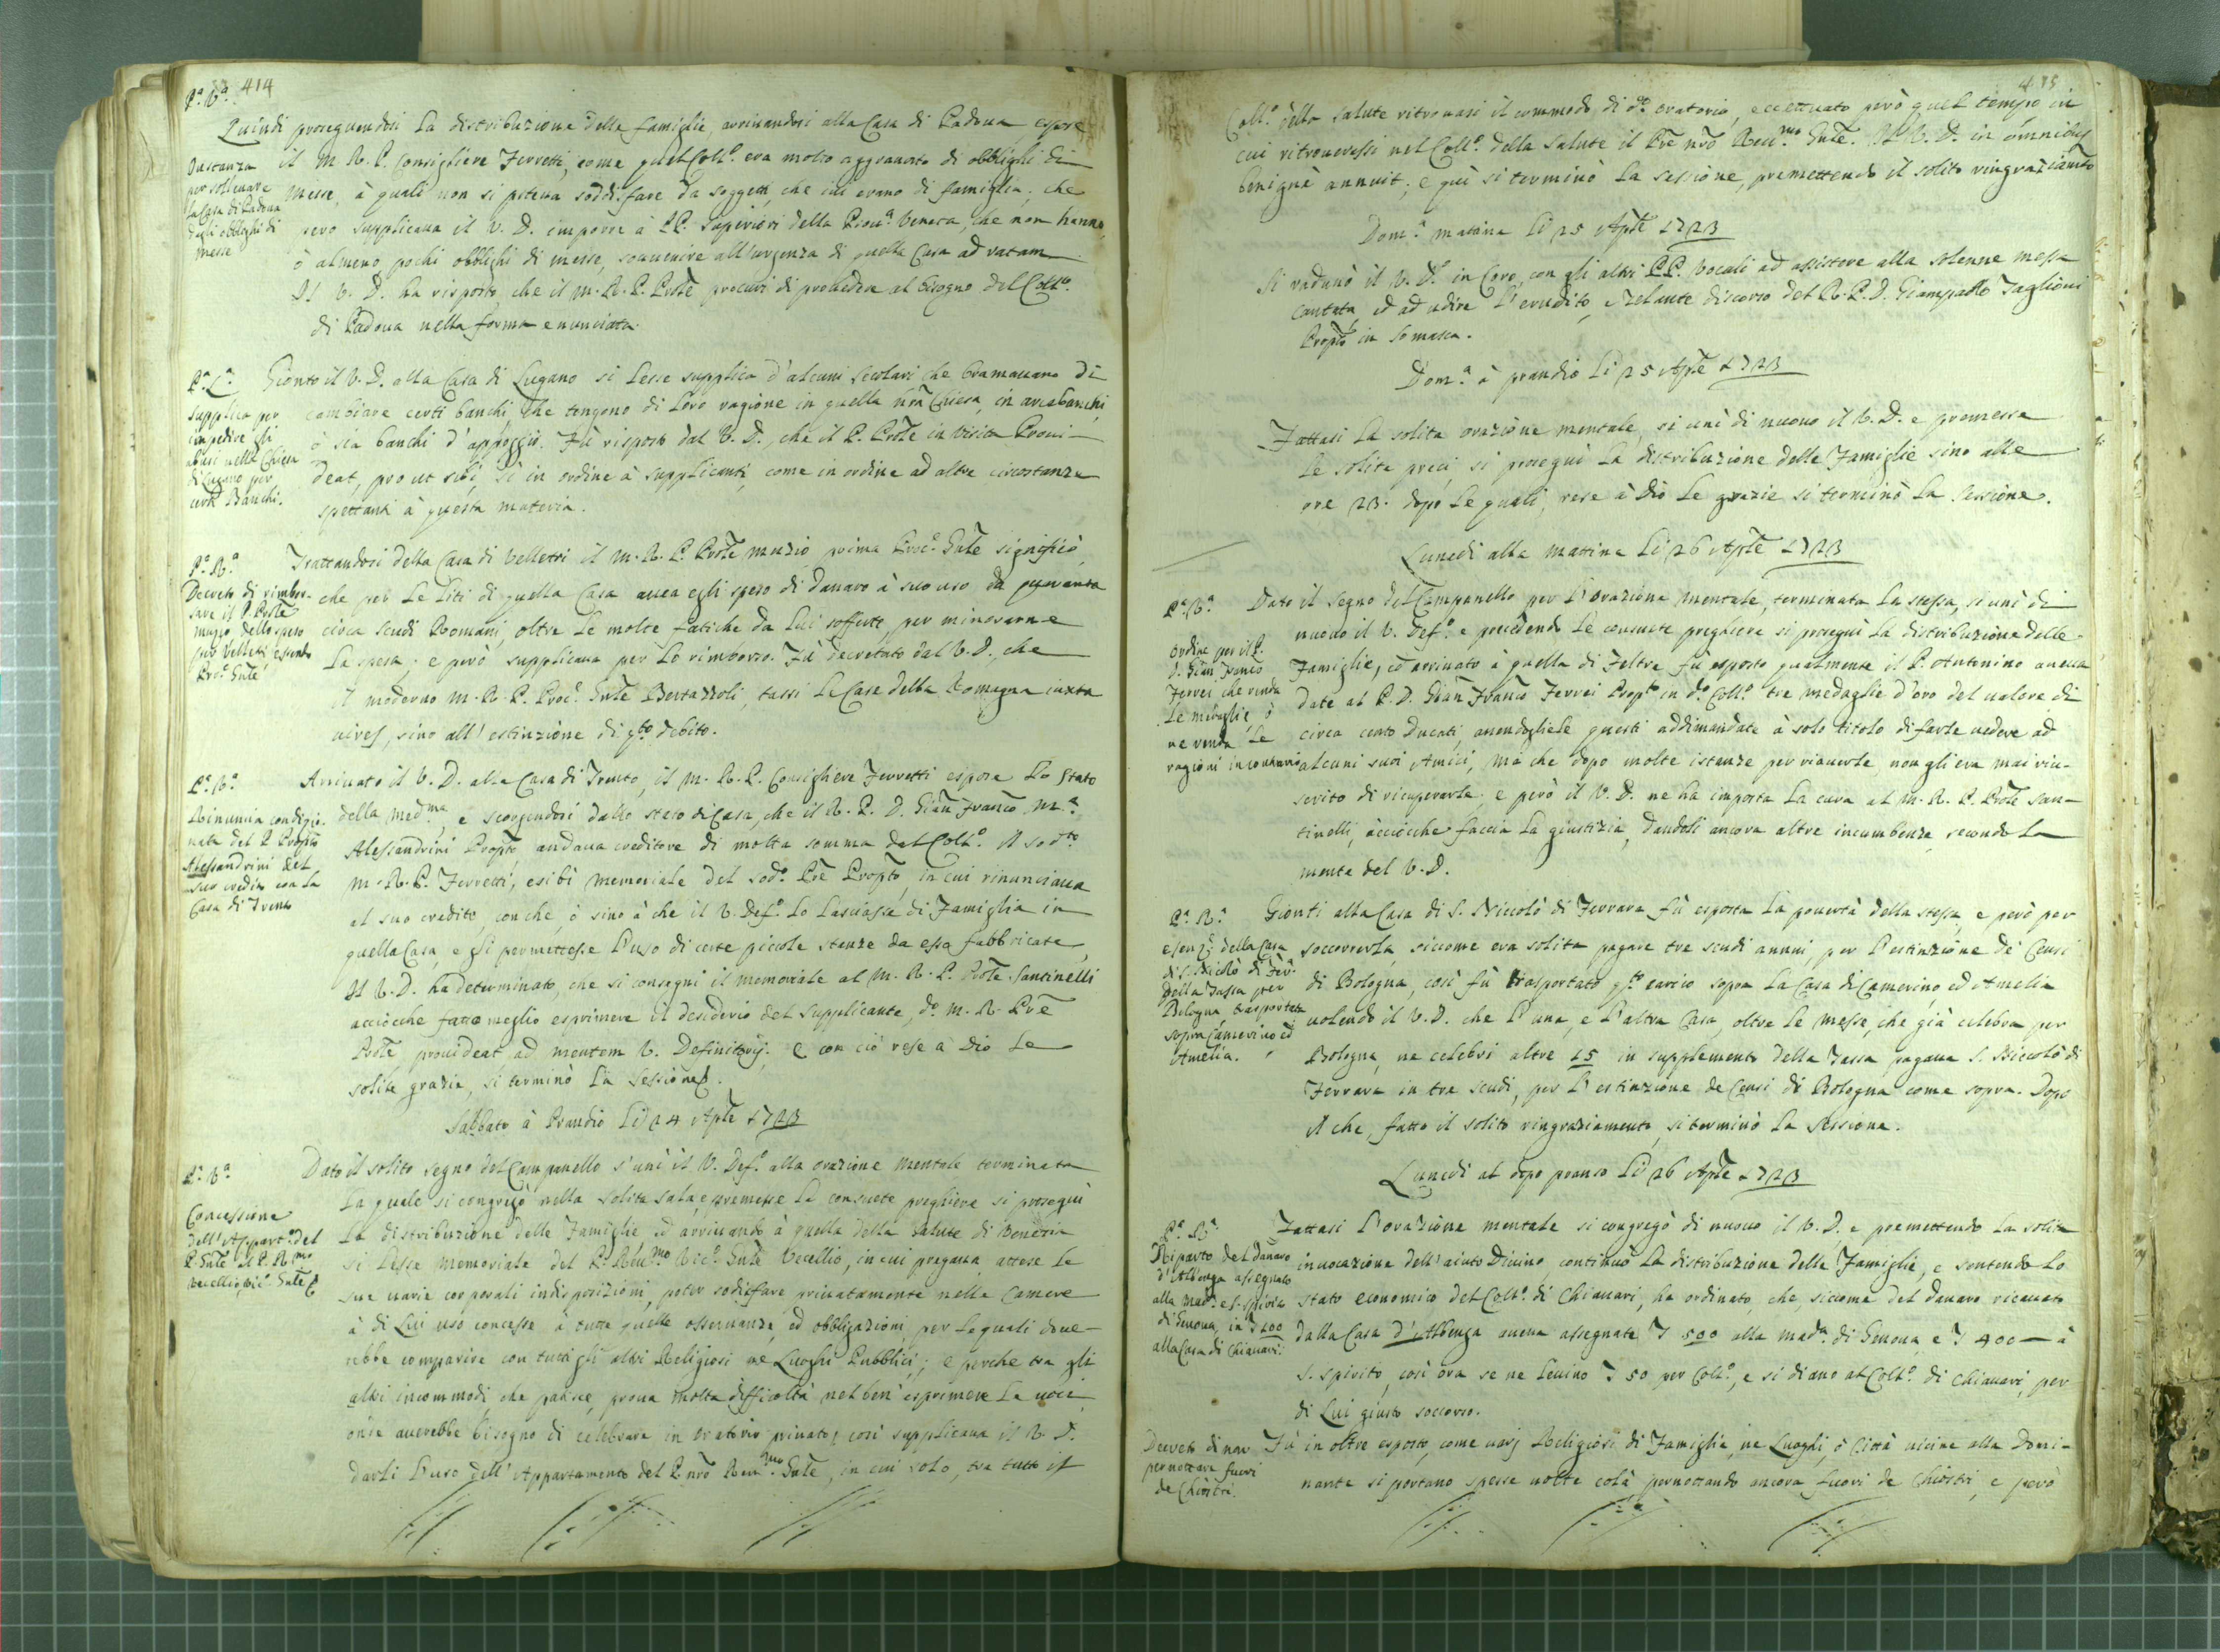 414
P.a V.a
Quindi proseguendosi la distribuzione delle famiglie, arrivandosi alla Casa di Padova espose
Instanza
per sollevare
la Casa di Padova
dagli obblighi di
Messe
il M. R. P. Consigliere Ferretti, come quel Coll.o era molto aggravato di obblighi di
Messe, à quali non si poteva soddisfare da soggetti, che ivi erano di famiglia; che
però supplicava il V. D. imporre à PP. Superiori della Prov.a Veneta, che non hanno,
ò almeno pochi obblighi di messe, sovvenire all'urgenza di quella Casa ad ratam
Il V. D. ha risposto, che il M. R. P. Prōle procuri di provedere al bisogno del Coll.o
di Padova nella forma enunciata.
P.a L.a
Supplica per
impedire gli
abusi nella Chiesa
di Lugano per
certi Banchi.
Gionto il V. D. alla Casa di Lugano si lesse supplica d'alcuni secolari che bramavano di
cambiare certi banchi, che tengono di loro ragione in quella nrā Chiesa, in arcabanchi,
ò sia banchi d'appoggio. Fù risposto dal V. D., che il P. Prōle in Visita Provi-
deat, prout sibi, sì in ordine à supplicanti, come in ordine ad altre circostanze
spettanti à questa materia.
P.a R.a
Decreto di rimbor-
sare il P. Prōle
Muzio dello speso
per Velletri essendo
Pro.r Gnle
Trattandosi della Casa di Velletri il M. R. P. Prōle Muzio, prima Proc.r Gnle significò,
che per le liti di quella Casa avea egli speso di danaro à suo uso da quaranta
circa scudi Romani, oltre le molte fatiche da lui sofferte per minorarne
la spesa; e però supplicava per lo rimborso. Fù decretato dal V. D., che
il moderno M. R. P. Proc.r Gnle Bertazzoli, tassi le Case della Romagna iuxta
vires, sino all'estinzione di q.to debito.
P.a V.a
Rinunia condizio-
nata del P. Propto
Alessandrini del
suo credito con la
Casa di Trento
Arrivato il V. D. alla Casa di Trento, il M. R. P. Consigliere Ferretti espose lo stato
della med.ma, e scorgendosi dallo stato di Casa, che il R. P. D. Gian Franco M.a
Alessandrini Propto, andava creditore di molta somma dal Coll.o il sod.to
M. R. P. Ferretti, esibì memoriale del sod.o Prē Propto, in cui rinunciava
al suo credito, con che, ò sino à che il V. Def.o lo lasciasse di Famiglia in
quella Casa, e gli permettesse l'uso di certe piccole stanze da esso fabbricate
Il V. D. ha determinato, che si consegni il memoriale al M. R. P. Prōle Santinelli
acciocche fatto meglio esprimere il desiderio del Supplicante, d.o M. R. Prē
Prōle provideat ad mentem V. Definitorij. E con ciò rese à Dio le
solite grazie, si terminò la sessione.
Sabbato à Prandio Li 24 Aprīle 1723
P.a V.a
Concessione
dell'Appart.o del
P. Gnle al P. R.mo
Vecellio Vic.o Gnle
Dato il solito segno del Campanello s'unì il V. Def.o alla orazione mentale terminata
la quale si congregò nella solita sala, e premesse le consuete preghiere si proseguì
la distribuzione delle Famiglie ed arrivando à quella della Salute di Venezia
si lesse memoriale del P. Reu.mo Vic.o Gnle Vecellio, in cui pregava, attese le
sue varie corporali indisposizioni, poter sodisfare privatamente nelle Camere
à di lui uso concesse à tutte quelle osservanze, ed obbligazioni, per le quali dove-
rebbe comparire con tutti gli altri Religiosi ne Luoghi Pubblici; e perche tra gli
altri incommodi, che patisce, prova molta difficoltà nel ben esprimere le voci,
onde averebbe bisogno di celebrare in Oratorio privato, così supplicava il V. D.
darli l'uso dell'Appartamento del P. nrō Reu.mo Gnle, in cui solo, tra tutto il
415
Coll.o della Salute ritrovasi il commodo di d.to Oratorio, eccettuato però quel tempo in
cui ritrovavassi nel Coll.o della Salute il Prē nrō Reu.mo Gnle. Il V. D. in omnibus
benignè annuit; e quì si terminò la sessione, premettendo il solito ringraziamto
Dom.a matina Li 25 Aprīle 1723
Si radunò il V. D. in Coro, con gli altri PP. Vocali ad assistere alla solenne messa
cantata, ed ad udire l'erudito, e zelante discorso del R. P. D. Giampaolo Taglioni
Propto in Somasca.
Dom.a à prandio Li 25 Aprīle 1723
Fattasi la solita orazione mentale, si unì di nuovo il V. D. e premesse
le solite preci si proseguì la distribuzione delle Famiglie sino alle
ore 23. dopo le quali, rese à Dio le grazie si terminò la sessione.
Lunedì alla mattina Li 26 Aprīle 1723
P.a V.a
Ordine per il P.
D. Gian Franco
Ferrei che renda
le medaglie, ò
ne renda le
ragioni in contrario
Dato il segno del Campanello per l'Orazione mentale, terminata la stessa, si unì di
nuovo il V. Def.o e precedendo le consuete preghiere si proseguì la distribuzione delle
Famiglie, ed arrivato à quella di Feltre fù esposto qualmente il P. Antonino aveva
date al P. D. Gian Franco Ferrei Propto in d.o Coll.o tre medaglie d'oro del valore di
circa cento Ducati, avendogliele questi addimandate à solo titolo di farle vedere ad
alcuni suoi Amici, mà che dopo molte istanze per riaverle non gli era mai riu-
scito di ricuperarle; e però il V. D. ne hà imposta la cura al M. R. P. Prōle San-
tinelli, acciocche faccia la giustizia, dandoli ancora altre incumbenze secondo la
mente del V. D.
P.a R.a
Esenz.e della Casa
di S. Nicolò di Fer.a
della Tassa per
Bologna trasportata
sopra Camerino ed
Amelia.
Gionti alla Casa di S. Niccolò di Ferrara fù esposta la povertà della stessa, e però per
soccorrerla, siccome era solita pagare tre scudi annui, per l'estinzione de Censi
di Bologna, così fù trasportato q.to carico sopra la Casa di Camerino, ed Amelia
volendo il V. D. che l'una, e l'altra Casa, oltre le messe, che già celebra per
Bologna, ne celebri altre 15 in supplemento della Tassa pagava S. Niccolò di
Ferrara in tre scudi, per l'estinzione de Censi di Bologna come sopra. Dopo
il che, fatto il solito ringraziamento, si terminò la sessione.
Lunedì al dopo pranso Li 26 Aprīle 1723
P.a L.a
Riparto del danaro
d'Albenga assegnato
alla Mad.a e S. Spirito
di Genova, in £ 100
alla Casa di Chiavari.
Fattasi l'orazione mentale si congregò di nuovo il V. D. e premettendo la solita
invocazione dell'aiuto Divino, continuò la distribuzione delle Famiglie, e sentendo lo
stato economico del Coll.o di Chiavari, ha ordinato, che, siccome del danaro ricavato
dalla Casa d'Albenga aveva assegnate £ 500 alla Mad.a di Genova, e £ 400 — à
S. Spirito, così ora se ne levino £ 50 per Coll.o, e si diano al Coll.o di Chiavari, per
di lui giusto soccorso.
Decreto di non
pernottare fuori
de Chiostri.
Fù in oltre esposto, come varj Religiosi di Famiglia, ne Luoghi, ò Città vicine alla Domi-
nante si portano spesse volte colà, pernottando ancora fuori de Chiostri, e però